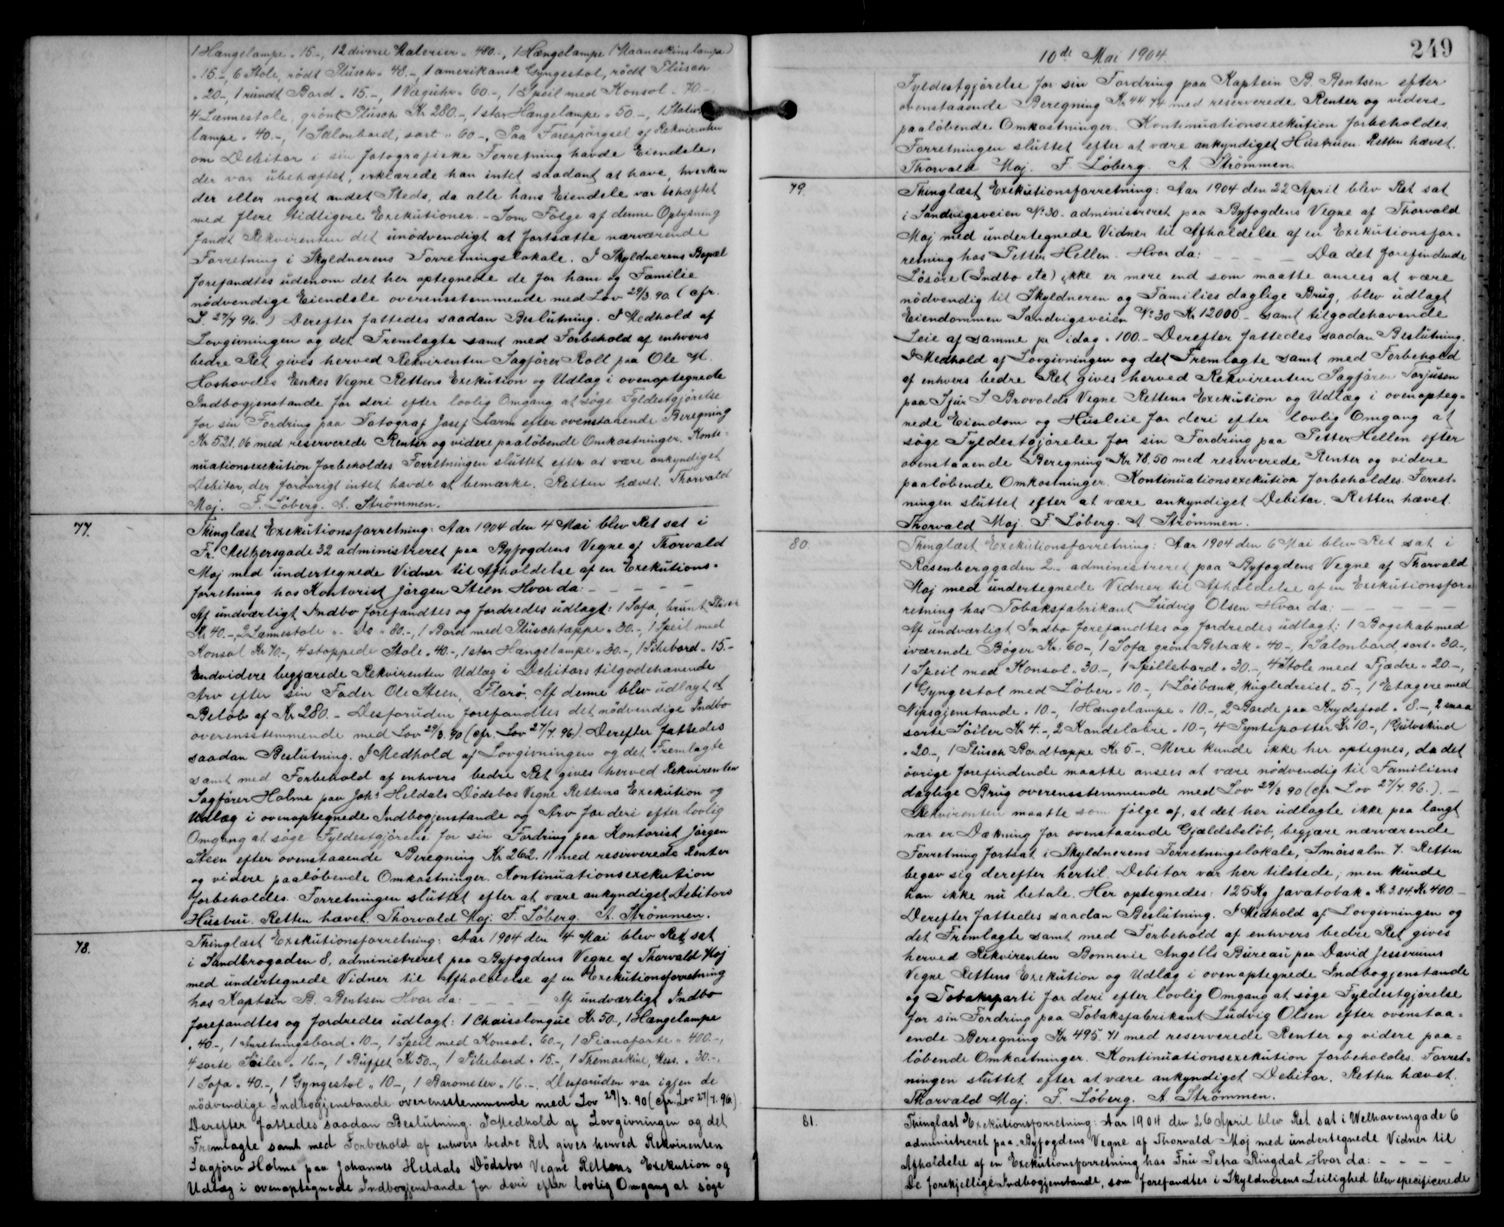 1 Hængelampe " 15-, 12 diverse Malerier " 480-, 1 Hængelampe (Maaneskinslampe)
" 15-, 6 Stole, rödt Plüsch " 48-, 1 amerikansk Gyngestol, rödt Plüsch
" 20-, 1 rundt Bord " 15-, 1 Væguhr " 60-, 1 Speil med Konsol " 70-,
4 Lænnestole, grönt Plüsch Kr 280-, 1 stor Hængelampe " 50-, 1
lampe " 40-, 1 Salonbord, sort " 60-, Paa Forespörgsel af Rekvirenten
om Debitor i sin fotografiske Forretning havde Eiendele,
der var übehæftet, erklærede han intet saadant at have, hverken
der eller noget andet Steds, da alle hans Eiendele var behæftet
med flere tidligere Exekutioner. - Som Fölge af denne Oplysning
fandt Rekvirenten det unödvendigt at fortsætte nærværende
Forretning i Skyldnerens Forretningslokale. I Skyldnerens Bopæl
forefandtes udenom det her optegnede de for ham og Familie
nödvendige Eiendele overensstemmende med Lov 29/3 90 (cfr.
L. 27/7 96.) Derefter fattedes saadan Beslutning. I Medhold af
Lovgivningen og det Fremlagte samt med Forbehold af enhvers
bedre Ret gives herved Rekvirenten Sagförer Roll paa Ole M.
Hoshovdes Enkes Vegne Rettens Exekution og Udlæg i ovenoptegnede
Indbogjenstande for deri efter lovlig Omgang at söge Fyldestgjörelse
for sin Fordring paa Fotograf Josef Larm efter ovenstaaende Beregning
Kr 521.06 med reserverede Renter og videre paalöbende Omkostninger. Konti-
nuationsexekution forbeholdes Forretningen sluttet efter at være ankyndiget
Debitor, der forövrigt intet havde at bemærke. Retten hævet. Thorvald
Moj. F. Löberg. A. Strömmen.
77. Thinglæst Exekutionsforretning: Aar 1904 den 4 Mai blev Ret sat i
Fr. Meltzersgade 32 administreret paa Byfogdens Vegne af Thorvald
Moj med undertegnede Vidner til Afholdelse af en Exekutions-
forretning hos Kontorist Jörgen Steen Hvor da: - - - -
Af undværligt Indbo forefandtes og fordredes udlagt: 1 Sofa, brunt Plüsch
Kr 40-, 2 Lænnestole " Do " 80-, 1 Bord med Plüschtæppe " 30-, 1 Speil med
Konsol Kr 70-, 4 stoppede Stole " 40-, 1 stor Hængelampe " 30-, 1 Pidebord " 15-
Endvidere begjærede Rekvirenten Udlæg i Debitors tilgodehavende
Arv efter sin Fader Ole Steen, Florö. Af denne blev udlagt et
Belöb af Kr 280.- Desforuden forefandtes det nödvendige Indbo
overensstemmende med Lov 29/3.90 (cfr. Lov 27/7.96) Derefter fattedes
saadan Beslutning. I Medhold af Lovgivningen og det Fremlagte
samt med Forbehold af enhvers bedre Ret gives herved Rekvirenten
Sagförer Holme paa Johs Heldals Dödsbos Vegne Rettens Exekution og
Udlæg i ovenoptegnede Indbogjenstande og Arv for deri efter lovlig
Omgang at söge Fyldestgjörelse for sin Fordring paa Kontorist Jörgen
Steen efter ovenstaaende Beregning Kr 262.11 med reserverede Renter
og videre paalöbende Omkostninger. Kontinuationsexekution
forbeholdes. Forretningen sluttet efter at være ankyndiget Debitors
Hustru. Retten hævet. Thorvald Moj. F. Löberg. A. Strömmen.
78. Thinglæst Exekutionsforretning: Aar 1904 den 4 Mai blev Ret sat
i Sandbrogaden 8, administreret paa Byfogdens Vegne af Thorvald Moj
med undertegnede Vidner til Afholdelse af en Exekutionsforretning
hos Kaptein B. Bentsen Hvor da: - - - - Af undværligt Indbo
forefandtes og fordredes udlagt: 1 Chaisslongue Kr 50-, 1 Hængelampe
" 40-, 1 Anretningsbord " 10-, 1 Speil med Konsol " 60-, 1 Pianoforte " 400-,
4 sorte Söiler " 16-, 1 Buffet Kr 50-, 1 Pidebord " 15-, 1 Themaskine, Mess. " 30-,
1 Sofa " 40-, 1 Gyngestol " 10-, 1 Barometer " 16-, Desforuden var igjen de
nödvendige Indbogjenstande overensstemmende med Lov 29/3. 90 (cfr. Lov 27/7. 96)
Derefter fattedes saadan Beslutning. I Medhold af Lovgivningen og det
Fremlagte samt med Forbehold af enhvers bedre Ret gives herved Rekvirenten
Sagförer Holme paa Johannes Heldals Dödsbos Vegne Rettens Exekution og
Udlæg i ovenoptegnede Indbogjenstande for deri efter lovlig Omgang at söge
249
10de Mai 1904.
Fyldestgjörelse for sin Fordring paa Kaptein B. Bentsen efter
ovenstaaende Beregning Kr 44 74 med reserverede Renter og videre
paalöbende Omkostninger. Kontinuationsexekution forbeholdes.
Forretningen sluttet efter at være ankyndiget Hustruen. Retten hævet.
Thorvald Moj. F. Löberg. A Strömmen.
79. Thinglæst Exekutionsforretning: Aar 1904 den 22 April blev Ret sat
i Sandvigsveien No 30. administreret paa Byfogdens Vegne af Thorvald
Moj med undertegnede Vidner til Afholdelse af en Exekutionsfor-
retning hos Petter Hellen. Hvor da: - - - - - Da det forefindende
Lösöre (Indbo etc) ikke er mere end som maatte ansees at være
nödvendig til Skyldneren og Families daglige Brug, blev udlagt
Eiendommen Sandvigsveien No 30 Kr 12000- samt tilgodehavende
Leie af samme pr idag " 100.- Derefter fattedes saadan Beslutning.
I Medhold af Lovgivningen og det Fremlagte samt med Forbehold
af enhvers bedre Ret gives herved Rekvirenten Sagförer Torjusen
paa Sjur S Brovolds Vegne Rettens Exekution og Udlæg i ovenopteg-
nede Eiendom og Husleie for deri efter lovlig Omgang at
söge Fyldestgjörelse for sin Fordring paa Petter Hellen efter
ovenstaaende Beregning Kr 78.50 med reserverede Renter og videre
paalöbende Omkostninger. Kontinuationsexekution forbeholdes. Forret-
ningen sluttet efter at være ankyndiget Debitor. Retten hævet.
Thorvald Moj F Löberg. A Strömmen.
80. Thinglæst Exekutionsforretning: Aar 1904 den 6 Mai blev Ret sat i
Rosenberggaden 2 administreret paa Byfogdens Vegne af Thorvald
Moj med undertegnede Vidner til Afholdelse af en Exekutionsfor-
retning hos Tobaksfabrikant Ludvig Olsen Hvor da: - - - -
Af undværligt Indbo forefandtes og fordredes udlagt: 1 Bogskab med
iværende Böger Kr 60-, 1 Sofa grönt Betræk " 40-, 1 Salonbord, sort " 30-,
1 Speil med Konsol " 30-, 1 Spillebord " 30-, 4 Stole med Fjædre " 20-,
1 Gyngestol med Löber " 10-, 1 Lösbænk, kugledreiet " 5-, 1 Etagere med
Nipsgjenstande " 10-, 1 Hængelampe " 10-, 2 Borde paa Krydsfod " 8-, 2 smaa
sorte Söiler Kr 4-, 2 Kandelabre " 10-, 4 Pyntepotter Kr 10-, 1 Gulvskind
" 20-, 1 Plüsch Bordtæppe Kr 5-. Mere kunde ikke her optegnes, da det
övrige forefindende maatte ansees at være nödvendig til Familiens
daglige Brug overensstemmende med Lov 29/3 90 (cfr Lov 27/7 96.) -
Rekvirenten maatte som fölge af, at det her udlagte ikke paa langt
nær er Dækning for ovenstaaende Gjældsbelöb, begjære nærværende
Forretning fortsat i Skyldnerens Forretningslokale, Smörsalm. 7. Retten
begav sig derefter hertil. Debitor var her tilstede, men kunde
han ikke nu betale. Her optegnedes: 125 Kg Javatobak à Kr 3.04 Kr 400-
Derefter fattedes saadan Beslutning. I Medhold af Lovgivningen og
det Fremlagte samt med Forbehold af enhvers bedre Ret gives
herved Rekvirenten Bonnevie Angells Bureau paa David Jessurums
Vegne Rettens Exekution og Udlæg i ovenoptegnede Indbogjenstande
og Tobaksparti for deri efter lovlig Omgang at söge Fyldestgjörelse
for sin Fordring paa Tobaksfabrikant Ludvig Olsen efter ovenstaa-
ende Beregning Kr 495.41 med reserverede Renter og videre paa-
löbende Omkostninger. Kontinuationsexekution forbeholdes. Forret-
ningen sluttet efter at være ankyndiget Debitor. Retten hævet.
Thorvald Moj. F. Löberg. A Strömmen.
81. Thinglæst Exekutionsforretning: Aar 1904 den 26 April blev Ret sat i Welhavensgade 6
administreret paa Byfogdens Vegne af Thorvald Moj med undertegnede Vidner til
Afholdelse af en Exekutionsforretning hos Fru Petra Ringdal Hvor da: - - - -
De forskjellige Indbogjenstande, som forefandtes i Skyldnerens Leilighed blev specificerede